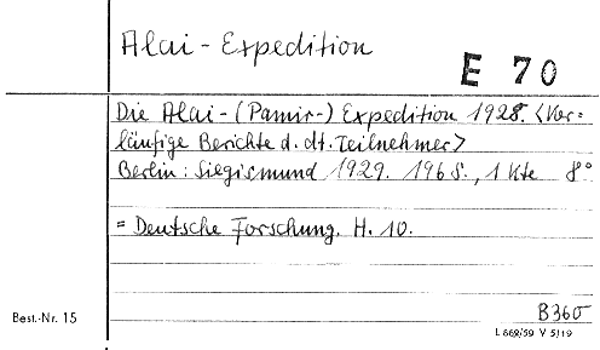 Alai - Expedition
E 70
Die Alai-(Pamir-) Expedition 1928. <Vor=
läufige Berichte d. dt. Teilnehmer>
Berlin: Siegismund 1929. 196 S., 1 Kte 8°
= Deutsche Forschung. H. 10.
B360
Best.-Nr. 15
L 669/59 V 5/19